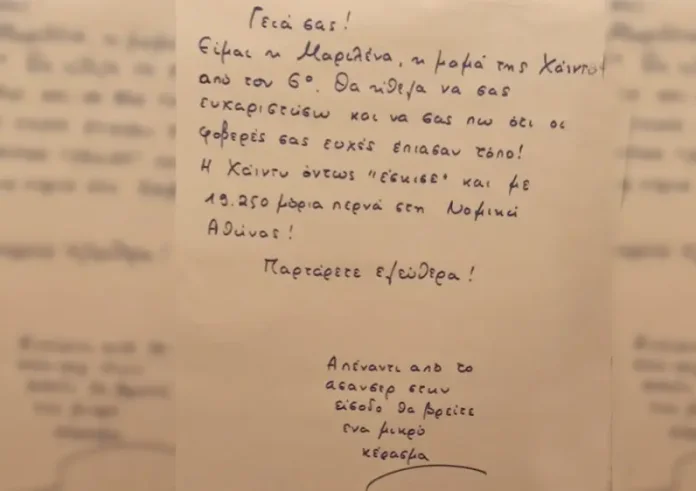 Γειά σας!
Είμαι η Μαριλένα, η μαμά της Χάιντυ
από τον 6º. Θα ήθελα να σας
ευχαριστήσω και να σας πω ότι οι
φοβερές σας ευχές έπιασαν τόπο!
Η Χάιντυ όντως "έσκισε" και με
19.250 μόρια περνά στη Νομική
Αθήνας!
Παρτάρετε ελεύθερα!
Απέναντι από το
ασανσερ στην
είσοδο θα βρείτε
ενα μικρό
κέρασμα